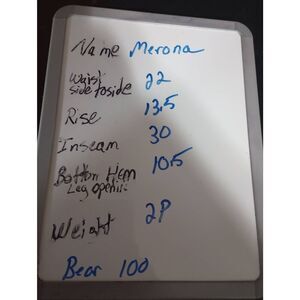 Name Merona
Waist 22
side to side
Rise 13.5
Inseam 30
Bottom Hem 10.5
Leg openin
Weight 2P
Bear 100